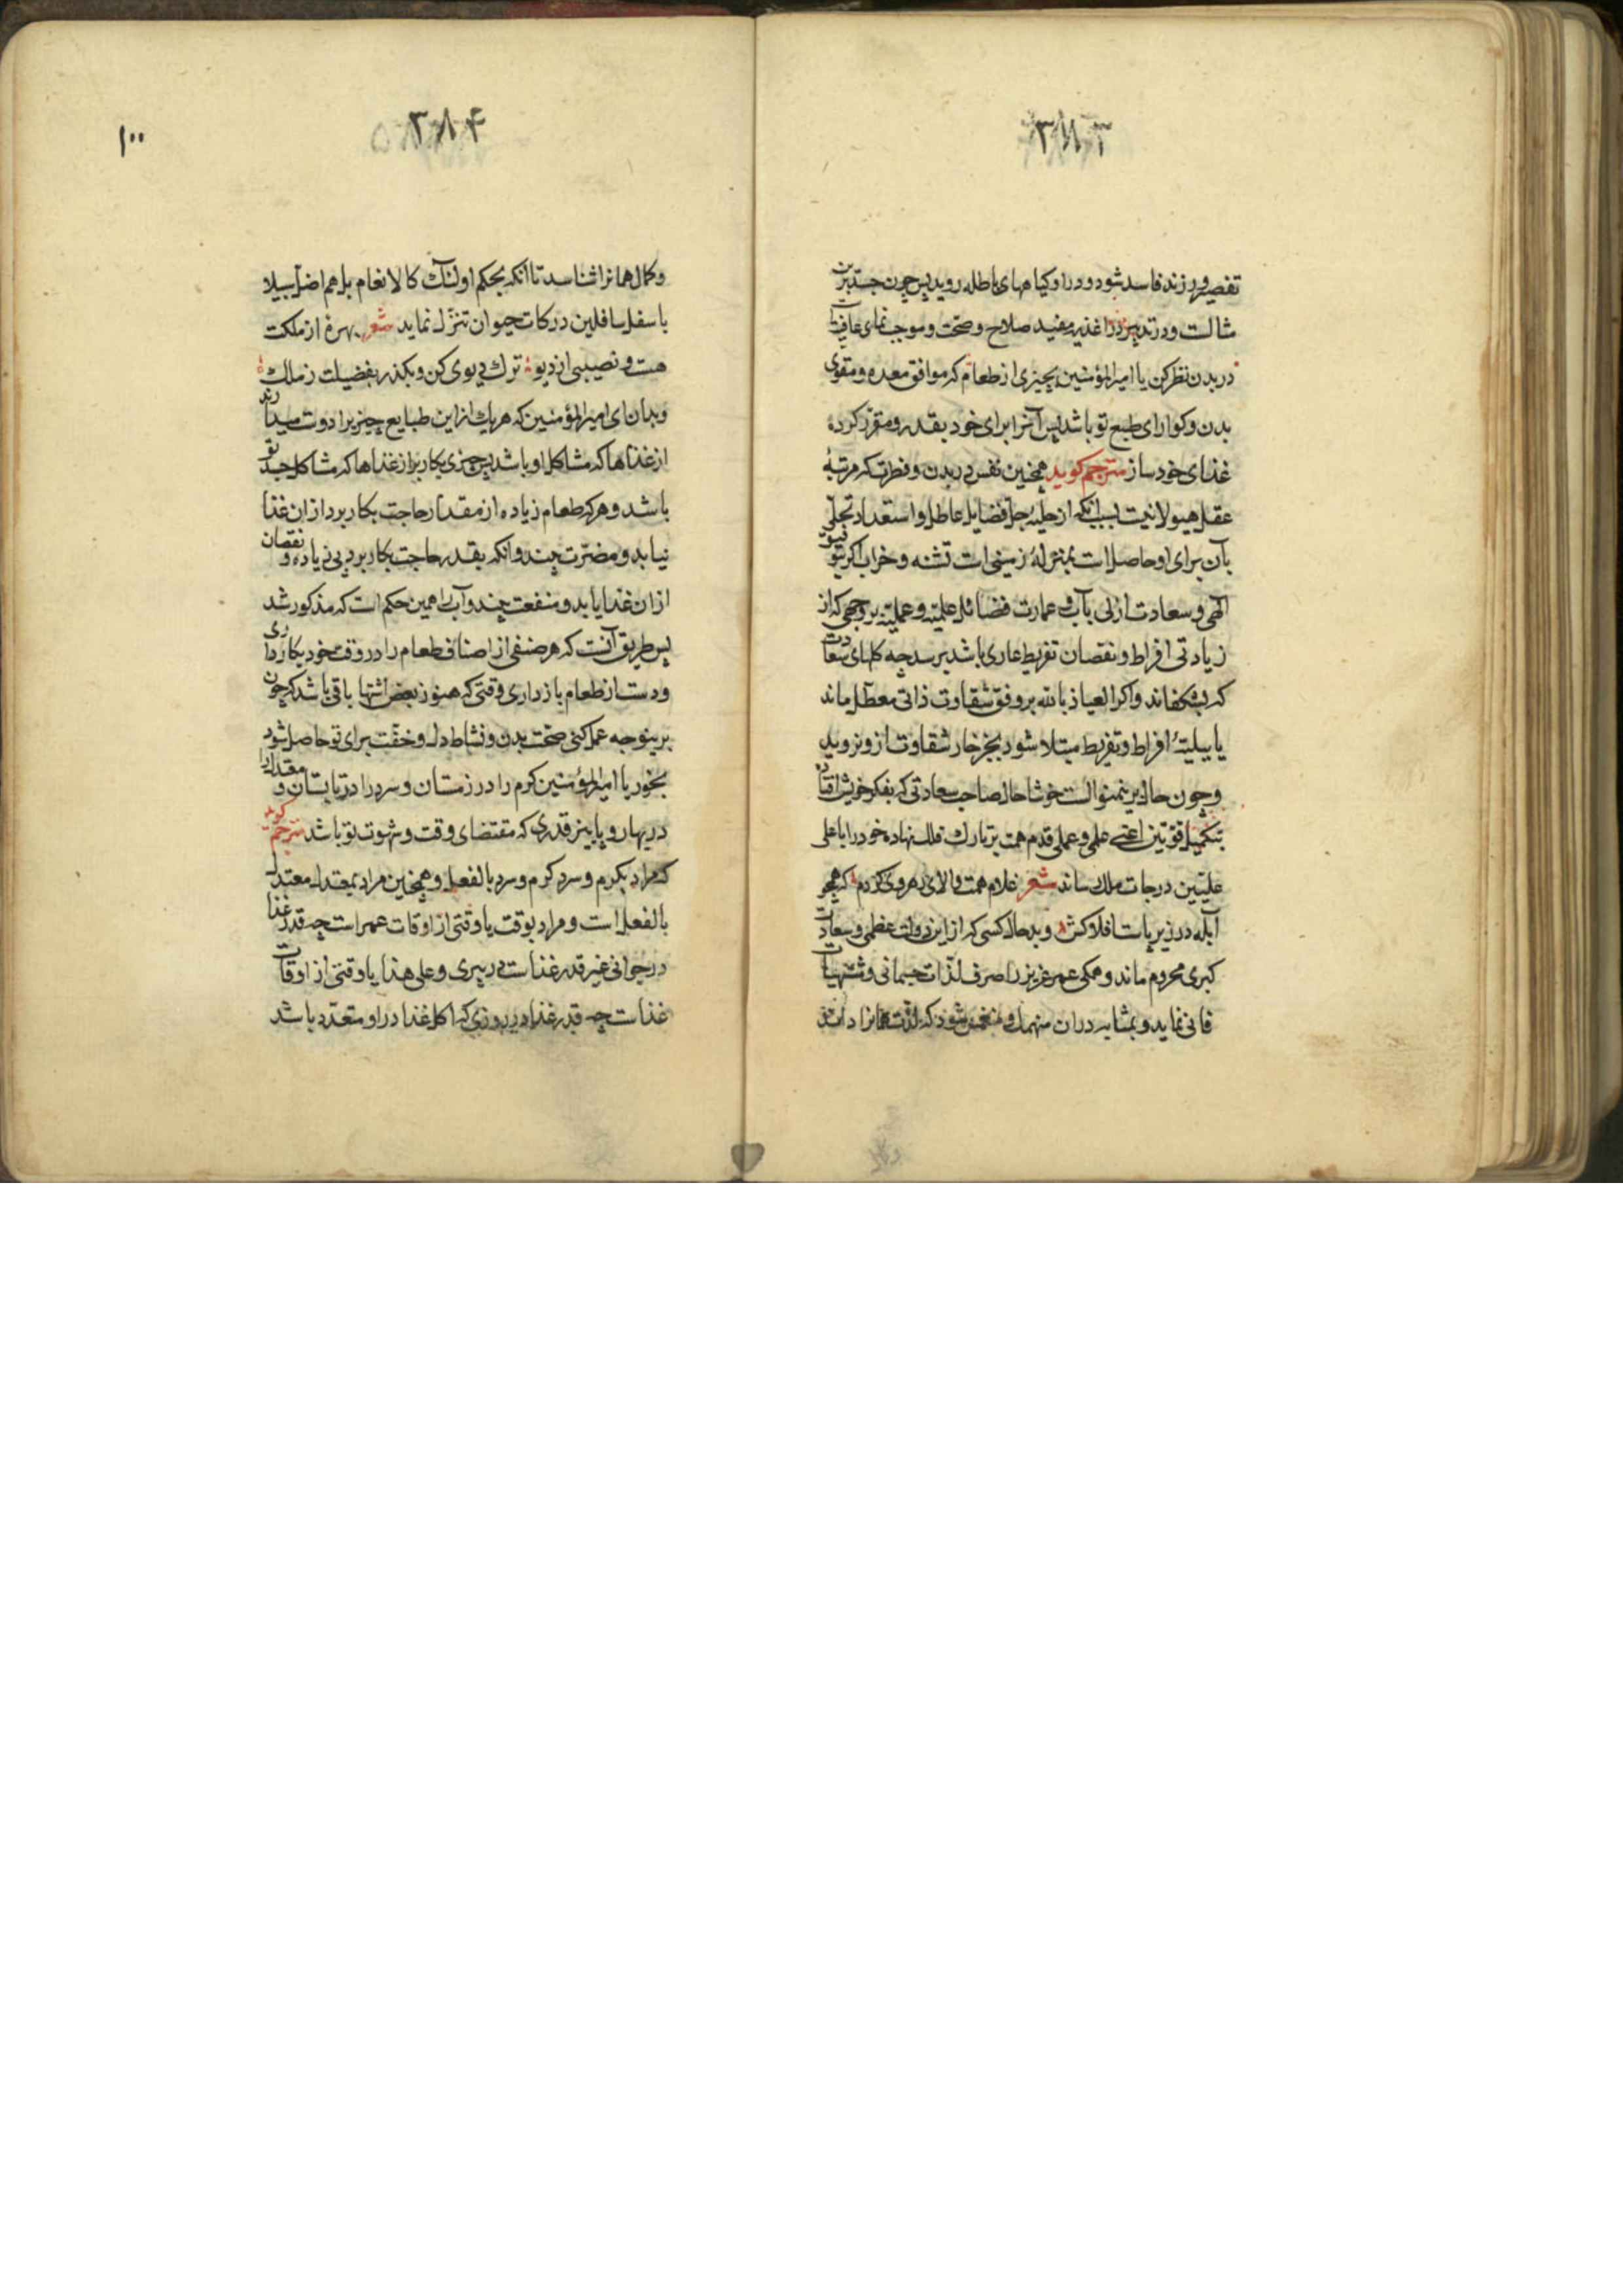 ۳۸۳
تقصیر ورزند فاسد شود و در او کیاههای باطله روید پس چون جسد برین
مثالست و در تدبیر در اغذیه مفید صلاح و صحّت و موجب نمای عافیت
در بدن نظر کن یا امیر المؤمنین بچیزی از طعام که موافق معده و مقوی
بدن و کوارای طبع تو باشد پس آنرا برای خود بقدر و مقرّر کرده
غذای خود ساز مترجم کوید همچنین نفس در بدن و فطرت که مرتبهٔ
عقل هیولانیت بسبب انکه از حلیهٔ جلّ فضایل عاطل و استعداد تجلّی
بآن برای او حاصل است بمنزلهٔ زمینی است تشنه و خراب اکر بتوفیق
آلهی و سعادت ازلی بآب و عمارت فضائل علمیّه و عملیّه بروجهی که از
زیادتی افراط و نقصان تفریط عاری باشد برسد چه کلهای سعادت
که بشکفاند و اکر العیاذ بالله بر وفق شقاوت ذاتی معطّل ماند
یا ببلیّهٔ افراط و تفریط مبتلا شود بجز خار شقاوت از و نروید
و چون حال برینمنوالست خوشا حال صاحب سعادتی که بفکر خویش افتاده
بتکمیل قوّتین اعنے علمی و عملی قدم همت بر تارک فلک نهاده خود را باعلی
علیّین درجات ملک رساند شعر غلام همت والای رهروی کردم که همچو
آبله در زیر پاست افلاکش و بد حال کسی که از این دولت عظمی و سعادت
کبری محروم ماند و همکی عمر عزیز را صرف لذّات جسمانی و مشتهیات
فانی نماید و بمثابه در ان منهمک و منغمس شود که لذّت همانرا داند
۳۸۴
۱۰۰
و کمال همانرا شناسد تا انکه بحکم اولئک کالانعام بل هم اضلّ سبیلا
باسفل سافلین درکات حیوان تنزّل نماید شعر بهرهٔ از ملکت
هست و نصیبی از دیو ترک دیوی کن و بکذر بفضیلت ز ملک
و بدان ای امیر المؤمنین که هر یک از این طبایع چیزیرا دوست میدارند
از غذاها که مشاکل او باشد پس چیزی بکار بر از غذاها که مشاکل جسد تو
باشد و هر که طعام زیاده از مقدار حاجت بکار برد از ان غذا
نیابد و مضرّت چیند و انکه بقدر حاجت بکار برد بی زیاده و نقصان
از ان غذا یابد و منفعت چیند و آب را همین حکم است که مذکور شد
پس طریق آنست که هر صنفی از اصناف طعام را در وقت خود بکار داری
و دست از طعام بازداری وقتی که هنوز بعض اشتها باقی باشد که چون
برینوجه عمل کنی صحّت بدن و نشاط دل و خفّت برای تو حاصل شود
بخور یا امیر المؤمنین کرم را در زمستان و سرد را در تابستان و مقدار
در بهار و پاییز قدری که مقتضای وقت و شهوت تو باشد مترجم کوید
که مراد بکرم و سرد کرم و سرد بالفعل و همچنین مراد بمعتدل معتدل
بالفعل است و مراد بوقت یا وقتی از اوقات عمر است چه قدر غذا
در جوانی غیر قدر غذاست در پیری و علی هذا یا وقتی از اوقات
غذاست چه قدر غذا در روزی که اکل غذا در او متعدّد باشد